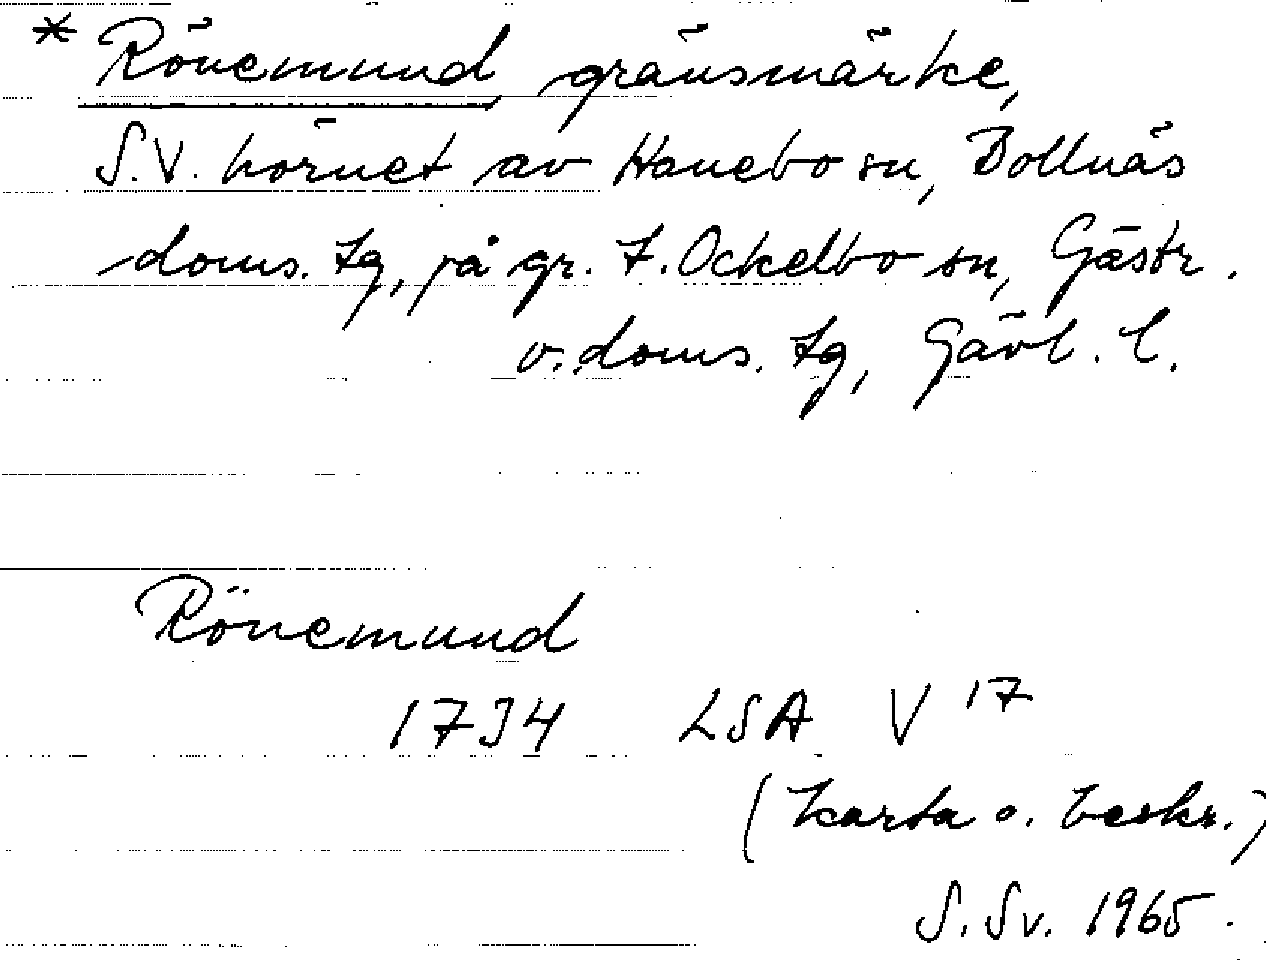 * Rönemund gränsmärke,
S.V. hörnet av Hanebo sn, Bollnäs
doms. tg, på gr. t. Ockelbo sn, Gästr.
v. doms. tg, Gävl. l.
Rönemund
1734 LSA V 17
(karta o. beskr.)
S. Sv. 1965.